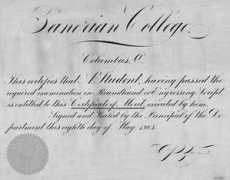 Zanerian College.
Columbus, O.
This certifies that A Student, having passed the
required examination in Roundhand or Engrossing Script
is entitled to this Certificate of Merit, executed by him.
Signed and Sealed by the Principal of the De-
partment this eighth day of May, 1903.